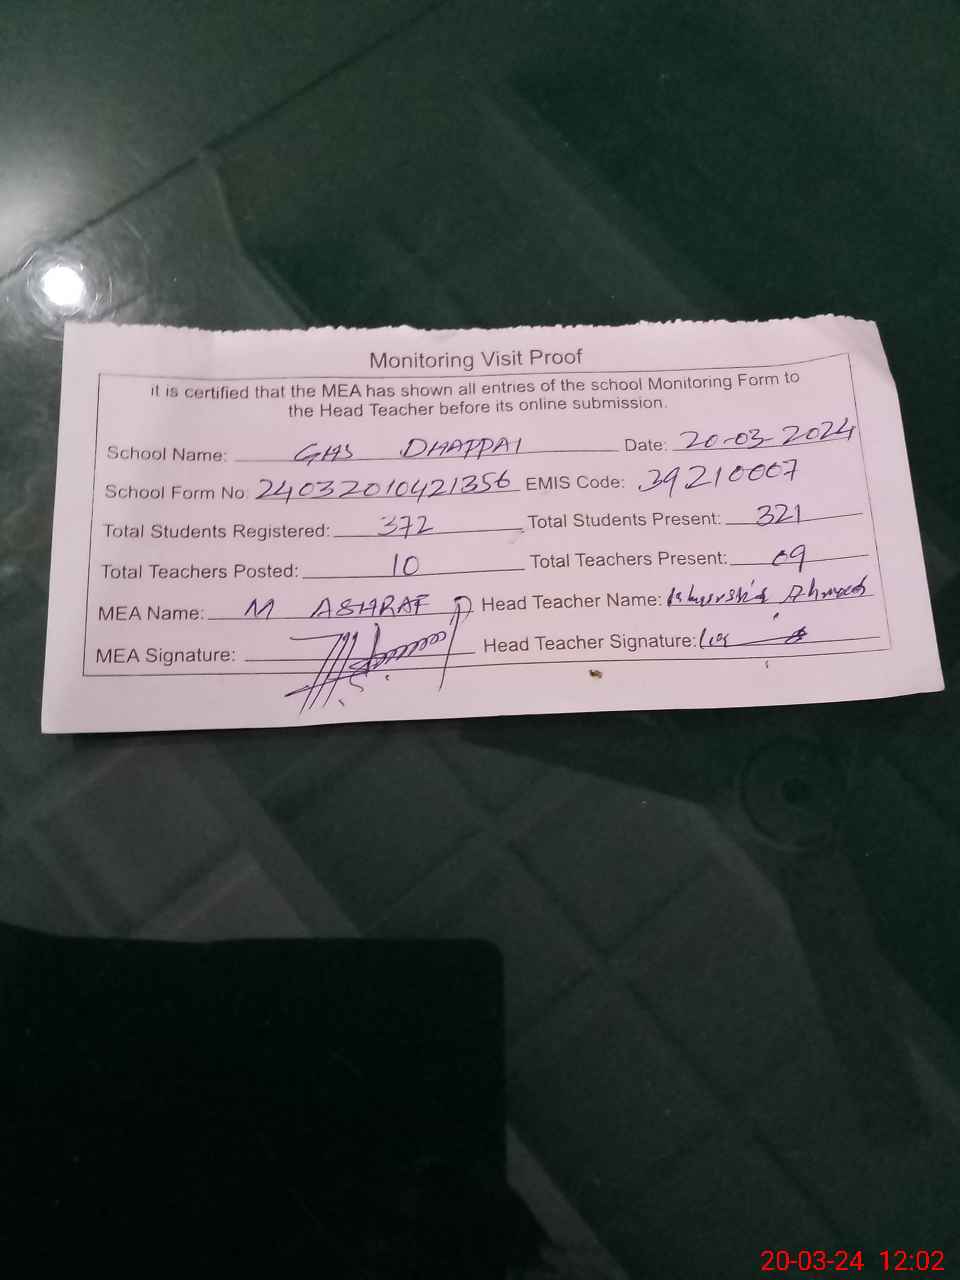 Monitoring Visit Proof
it is certified that the MEA has shown all entries of the school Monitoring Form to
the Head Teacher before its online submission.
School Name: GHS DHAPPAI Date: 20-03-2024
School Form No: 24032010421356 EMIS Code: 39210007
Total Students Registered: 372 Total Students Present: 321
Total Teachers Posted: 10 Total Teachers Present: 09
MEA Name: M ASHRAF Head Teacher Name: Khurshid Ahmed
MEA Signature: Head Teacher Signature:
20-03-24 12:02